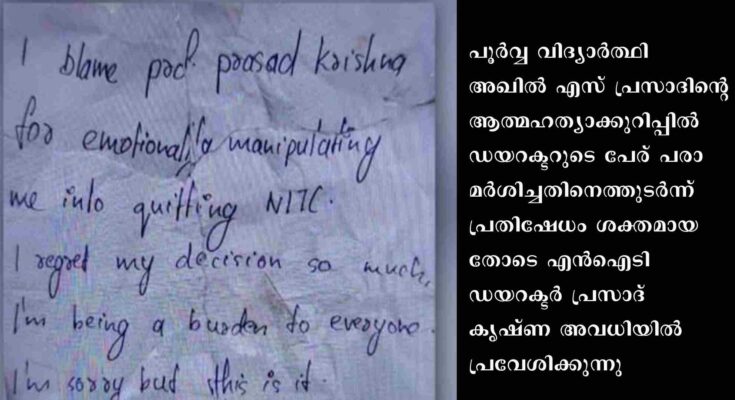 I blame prof. prasad krishna
for emotionally manipulating
me into quitting NITC.
I regret my decision so much.
I'm being a burden to everyone.
I'm sorry but this is it.
പൂർവ്വ വിദ്യാർത്ഥി
അഖിൽ എസ് പ്രസാദിന്റെ
ആത്മഹത്യാക്കുറിപ്പിൽ
ഡയറക്ടറുടെ പേര് പരാ
മർശിച്ചതിനെത്തുടർന്ന്
പ്രതിഷേധം ശക്തമായ
തോടെ എൻഐടി
ഡയറക്ടർ പ്രസാദ്
കൃഷ്ണ അവധിയിൽ
പ്രവേശിക്കുന്നു